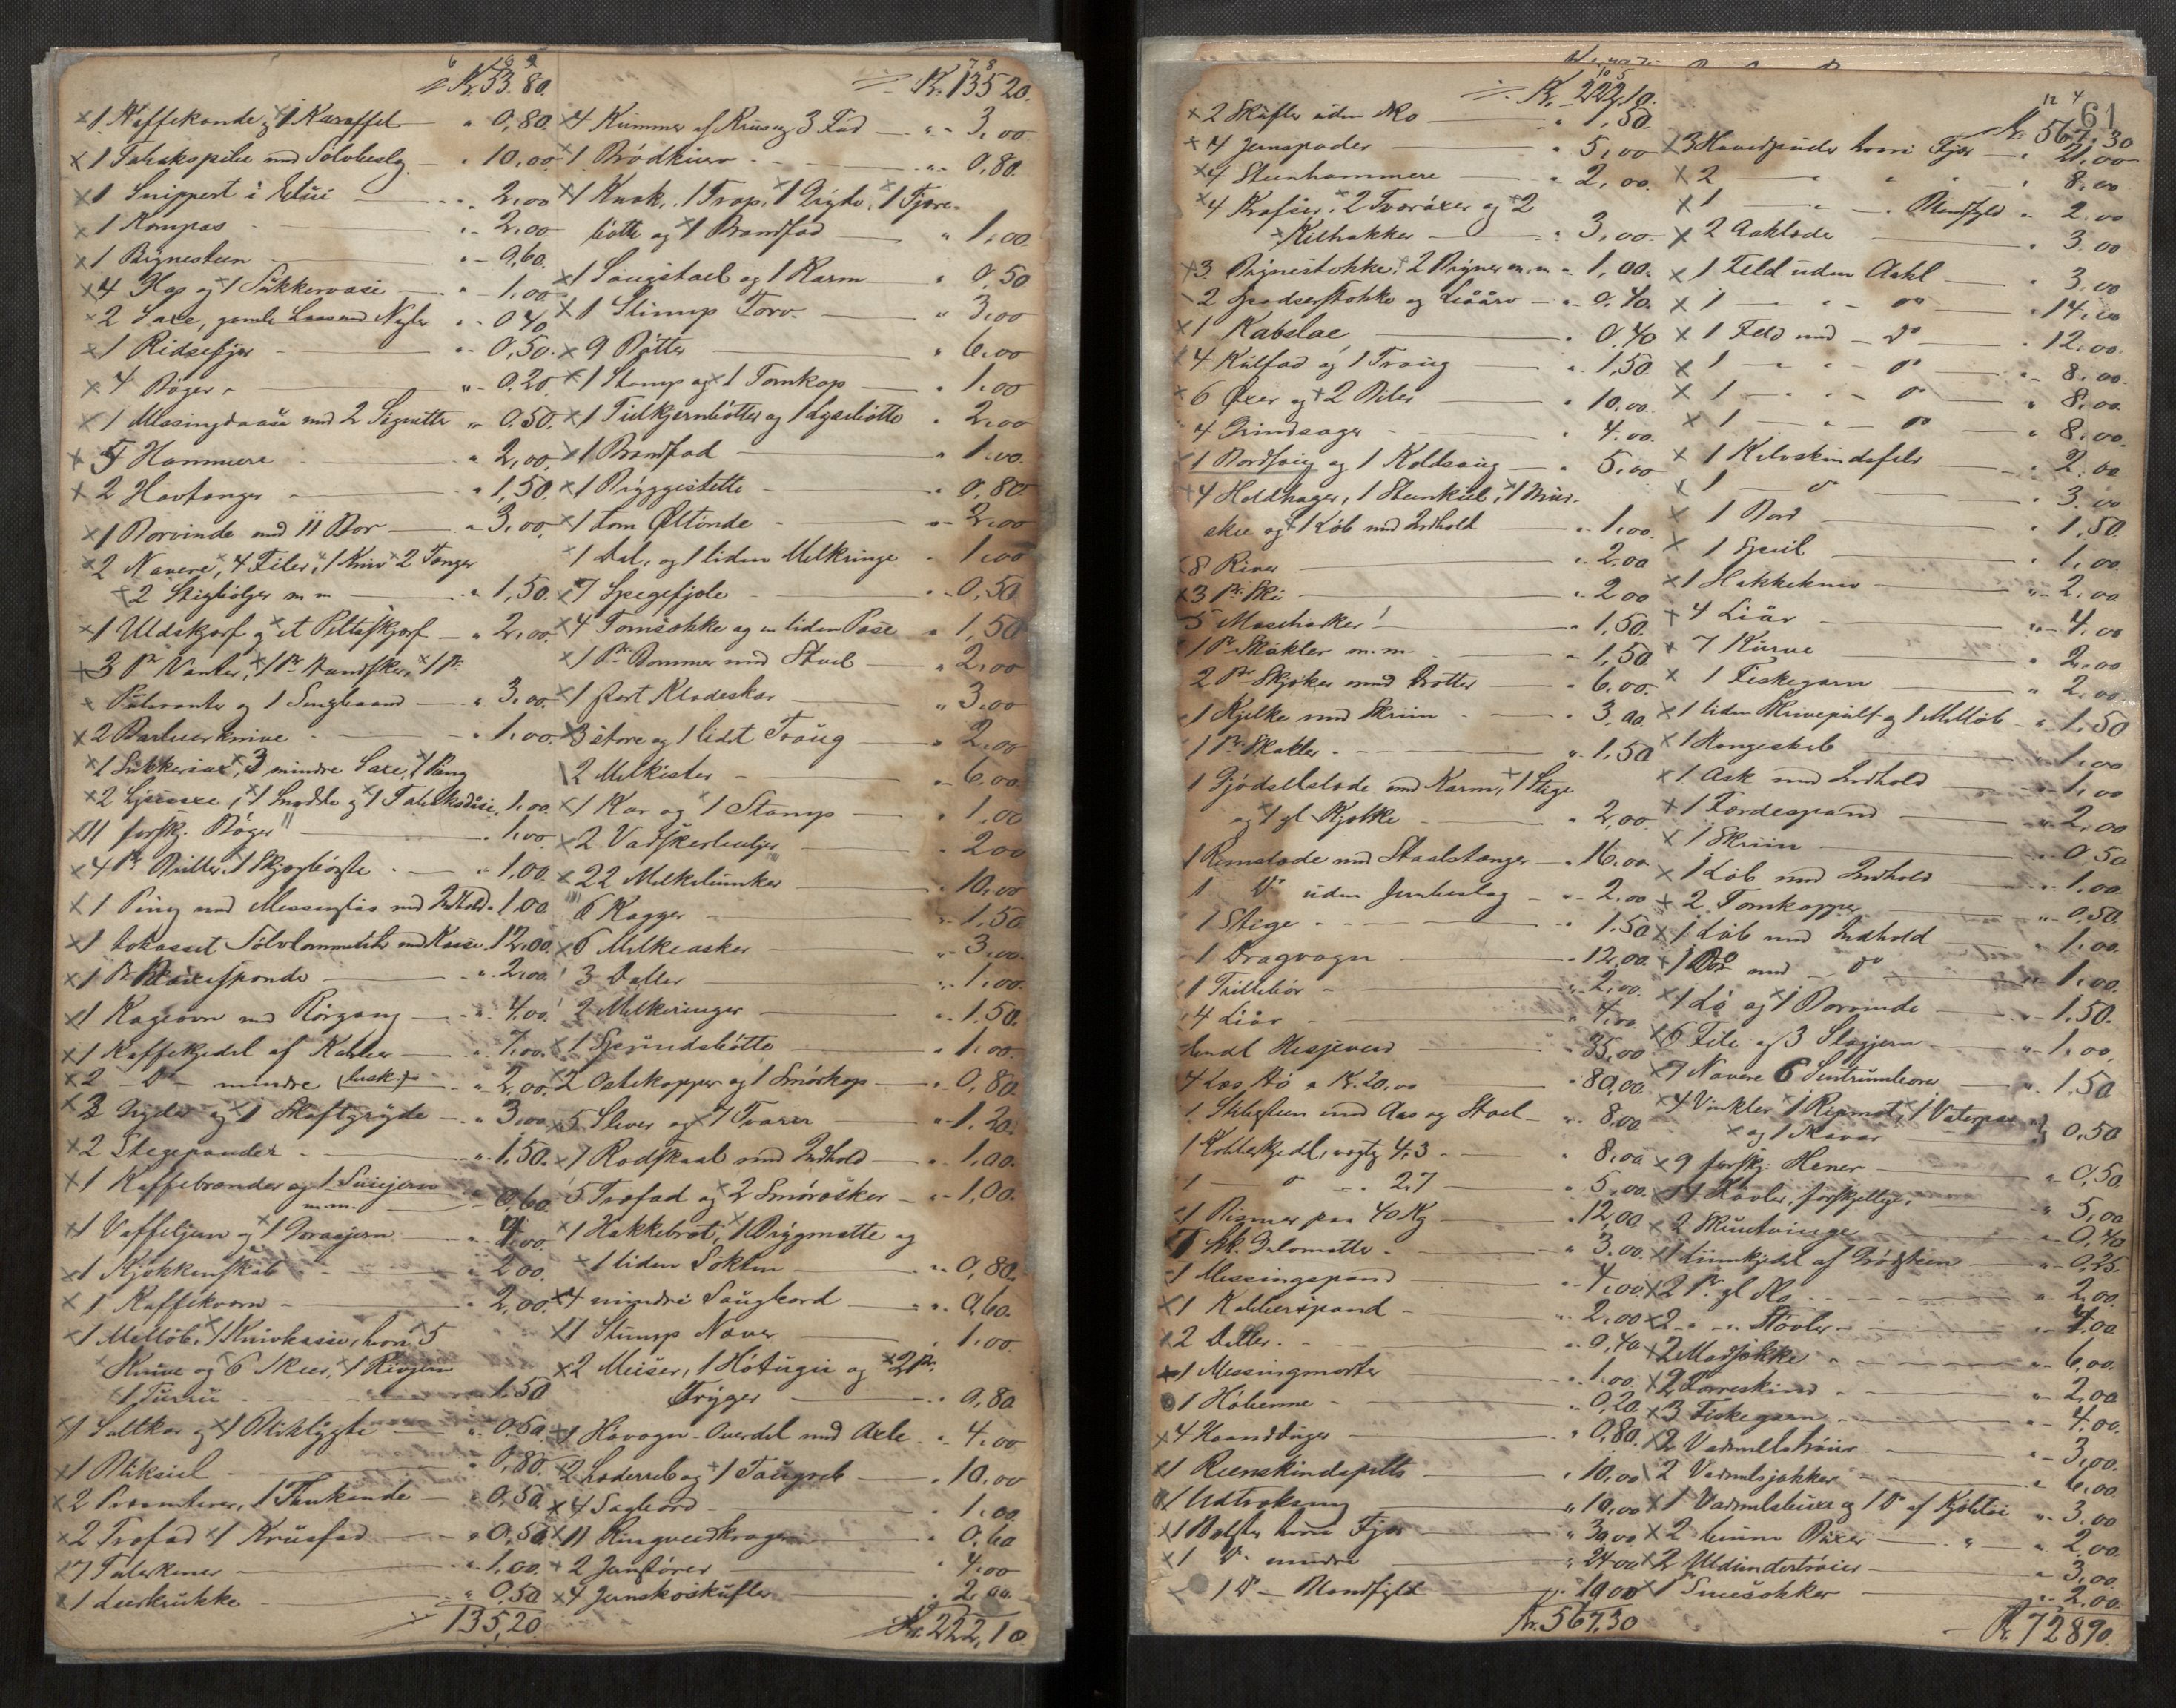 Kr. 53.80.
×1 Kaffekande & ×1 Karaffel — " 0,80.
×1 Tobakspibe med Sølvbeslag — " 10,00
×1 Snippert i Etui — " 2,00
×1 Kompas — " 2,00
×1 Brynesteen — " 0,60.
×4 Glas og ×1 Sukkervase — " 1,00
×2 Saxe, gamle Laase med Nøgler " 0,40
×1 Ridsefjær — " 0,50.
×4 Bøger — " 0,20
×1 Messingdaase med 2 Signetter " 0,50.
×5 Hammere — " 2,00
×2 Hovtænger — " 1,50.
×1 Borvinde med 11 Bor — " 3,00
×2 Navere, ×4 Filer, ×1 Kniv ×2 Tænger
×2 Stigbøiler m m — " 1,50.
×1 Uldskjorf & et Pottaskjorf — " 2,00
×3 Pr Vanter, ×1 Pr Handsker, ×1 Pr
× Pulsvanter og 1 Senglaand — " 3,00.
×2 Barberknive — " 1,00.
×1 Sukkersax, ×3 mindre Saxe, ×1 Pung
×2 Lysesaxe, ×1 Snydde & ×1 Tobaksdaase, 1,00.
×11 forskj. Bøger — " 1,00
×4 Pr Briller, 1 Skjægbørste — " 1,00.
×1 Pung med Messinglaas med Indhold " 1,00
×1 tokasset Sølvlommeuhr med Kasse 12,00.
×1 — " 2,00.
×1 Kageovn med Rørgang — " 4,00
×1 Kaffekjedel af Kobber — " 7,00.
×2 — D — mindre (lask.) " 2,00
×3 Gryder og ×1 Skaftgryde — " 3,00
×2 Stegepander — " 1,50.
×1 Kaffebrænder og 1 Suiejern
m.m. — " 0,60.
×1 Vaffeljern og ×1 Gorojern — " 4,00
×1 Kjøkkenskab — 2,00.
×1 Kaffekværn — " 2,00.
×1 Melløb, ×1 Knivkasse, hvori ×5
×Knive og ×6 Skeer, ×1 Rivjern
×1 Turru — 1,50
×1 Saltkar og ×1 Bliklygte — " 0,50
×1 Bliksiel — " 0,80.
×2 , 1 Theekande — " 0,50
×2 Træfad ×1 Krusfad — " 0,50
×7 Talerkener — " 1,00.
×1 Leerkrukke — " 0,50
135,20.
Kr. 135 20.
×4 Kummer af Krus og 3 Fad — " 3,00
×1 Brødkurv — " 0,80.
×1 Knak, 1 Trap, ×1 Gryde, ×1 Tjære-
bøtte og ×1 Brandfad — " 1,00.
×1 Saugstael og 1 Karm — " 0,50
×1 Slump Torv — " 3,00
×9 Bøtter — " 6,00
×1 Stamp og ×1 Tomkop — " 1,00
×1 Tielkjernbøtter og 1 Lysebøtte " 2,00
×1 Brandfad — " 1,00.
×1 Bryggestette — " 0,80.
×1 tom Øltønde — " 2,00
×1 Dal, og 1 liden Melkringe " 1,00
×7 Spegefjøle — " 0,50
×4 Tomsække og en liden Pose " 1,50
×1 Pr Bommer med Stoel — " 2,00
×1 stort Klædeskar — " 3,00
×3 store og 1 lidet Traug — " 2,00
2 Melkister — " 6,00.
×1 Kar og ×1 Stamp — " 1,00
×2 Vadskerbaljer — " 2,00
×22 Melkebunker — " 10,00
6 Kagger — " 1,50
×6 Melkeasker — " 3,00.
3 Daller — " 1,00.
2 Melkeringer — " 1,50.
×1 Spundsbøtte — " 1,00.
×2 Ostekopper og 1 Smørkop — " 0,80.
×5 Sliver og ×7 Tvarer — " 1,20.
×1 Rødskaal med Indhold — " 1,00.
5 Træfad og ×2 Smørasker — " 1,00.
×1 Hakkebræt, ×1 Brygmatte og
×1 liden Sokten — " 0,80.
×4 mindre Saugbord — " 0,60.
×1 Slump Næver — " 1,00.
×2 Meiser, 1 Høtugu og ×2 Pr
Tryger — " 0,80
×1 Høvogn-Overdel med Axle " 4,00
×2 Læderreb og ×1 Taugreb — " 10,00
×4 Sagbord — " 1,00.
×11 Ringveedkrager — " 0,60
×2 Janstører — " 4,00
×4 Jernskoskufler — " 2,00.
Kr. 222,10.
Kr. 222,10.
×2 Skufler uden Sko — " 1,50.
×4 Jernspader — " 5,00
×4 Steenhammere — " 2,00.
×4 Krafser, ×2 Tværøxer og ×2
×Kilhakker — " 3,00.
×3 Brynestokke, ×2 Bryner m.m " 1,00.
×2 Spadserstokke og Liaarv — " 0,40.
×1 Kabslae — " 0,40
×4 Kulfad og 1 Traug — " 1,50
×6 Øxer og ×2 Biler — " 10,00.
4 Grindsager — " 4,00.
1 Bordsaug og 1 Koldsaug — " 5,00
4 Holdhager, 1 Steenkiil, ×1 Muur-
skee og ×1 Løb med Indhold " 1,00.
×8 River — " 2,00
×3 Pr Ski — " 2,00
5 Mosehakker! — " 1,50.
1 Pr Skakler m.m. — " 1,50
2 Pr Skjøker med Drotter — " 6,00.
1 Kjelke med Skriin — " 3,00.
1 Pr Skakler — " 1,50
1 Gjødselslæde med Karm, ×1 Stige
og ×1 gl Kjælke — " 2,00
1 Remslæde med Staalstænger — " 16,00
1 D° uden Jernbeslag — " 2,00
1 Stige — " 1,50
1 Dragvogn — " 12,00
1 Trillebør — " 2,00.
4 Liar — " 4,00
Endl Hesjeved — " 35,00
4 Læs Hø a Kr. 20,00 — " 80,00.
1 Slibsteen med Aas og Stoel — " 8,00
1 Kobberkjedl, vægtg 4,3 — " 8,00
1 — " — " 2,7 — " 5,00.
1 Bismer paa 40 Kg — " 12,00
1 Stk. Gulvmatte — " 3,00.
1 Messingspand — " 4,00
×1 Kobberspand — " 2,00
×2 Daller — " 0,40
×1 Messingmorter — " 1,00.
1 Høkenne — " 0,20
×4 Haandduger — " 0,80.
×1 Reenskindspelts — " 10,00
1 Udtræksseng — " 10,00
×1 Bolster hvori Fjær — " 30,00
×1 D° mindre — " 24,00
1 D° — Blandfyld — " 10,00
Kr. 567,30
61
Kr. 567.30
×3 Hovedpuder hvori Fjær — " 21,00
×2 — " — " 8,00
×1 — " — Blandfyld " 2,00
×2 Aaklæde — " 3,00
×1 Feld uden Aakl — " 3,00
×1 — " — D° " 14,00
×1 Feld med — D° — " 12,00.
×1 — " — D° — " 8,00.
×1 — " — D° — " 8,00.
×1 — " — D° — " 8,00.
×1 Kalvskindsfeld — " 2,00
×1 — D° — " 3,00
×1 Bord — " 1,50
×1 Speil — " 1,00.
×1 Hakkekniv — " 2,00
×4 Liar — " 4,00
×7 Kurve — " 2,00
×1 Fiskegarn — " 2,00
×1 liden Skrivepult og 1 Melløb " 1,50
×1 Hængeskab — " 1,00
×1 Ask med Indhold — " 1,00
×1 Færdespand — " 2,00
×1 Skriin — " 0,50
×1 Løb med Indhold — " 1,00.
×2 Tomkopper — " 0,50
×1 Løb med Indhold — " 1,00.
×1 D° med — D° — " 1,00.
×1 Lø og ×1 Borvinde — " 1,50.
×6 File og 3 Slagjern — " 1,00.
×7 Navere 6 Sentrumborer — " 1,50
×4 Vinkler ×1 Repmot, ×1 Vaterpas
× og 1 Skavar — 0,50
×9 forskj. Hener — " 0,50.
×14 Høvler, forskjellige — " 5,00
×2 Skruetvinger — " 0,40
×1 Liimkjedel af Grødsteen — " 0,25.
×2 Pr gl Sko — " 2,00.
×2 " " Støvler — " 4,00
×2 Madsække — " 6,00.
×2 Faareskind — " 2,00
×3 Fiskegarn — " 4,00.
×2 Vadmelstrøier — " 3,00.
×2 Vadmelsjakker — " 6,00.
×1 Vadmelsbuxe og 1 D° af Kjøbtøi " 3,00
×2 Buxer — " 2,00.
×2 Uldundertrøier — " 3,00.
×1 Sneesokker — " 2,00.
Kr. 728 90.